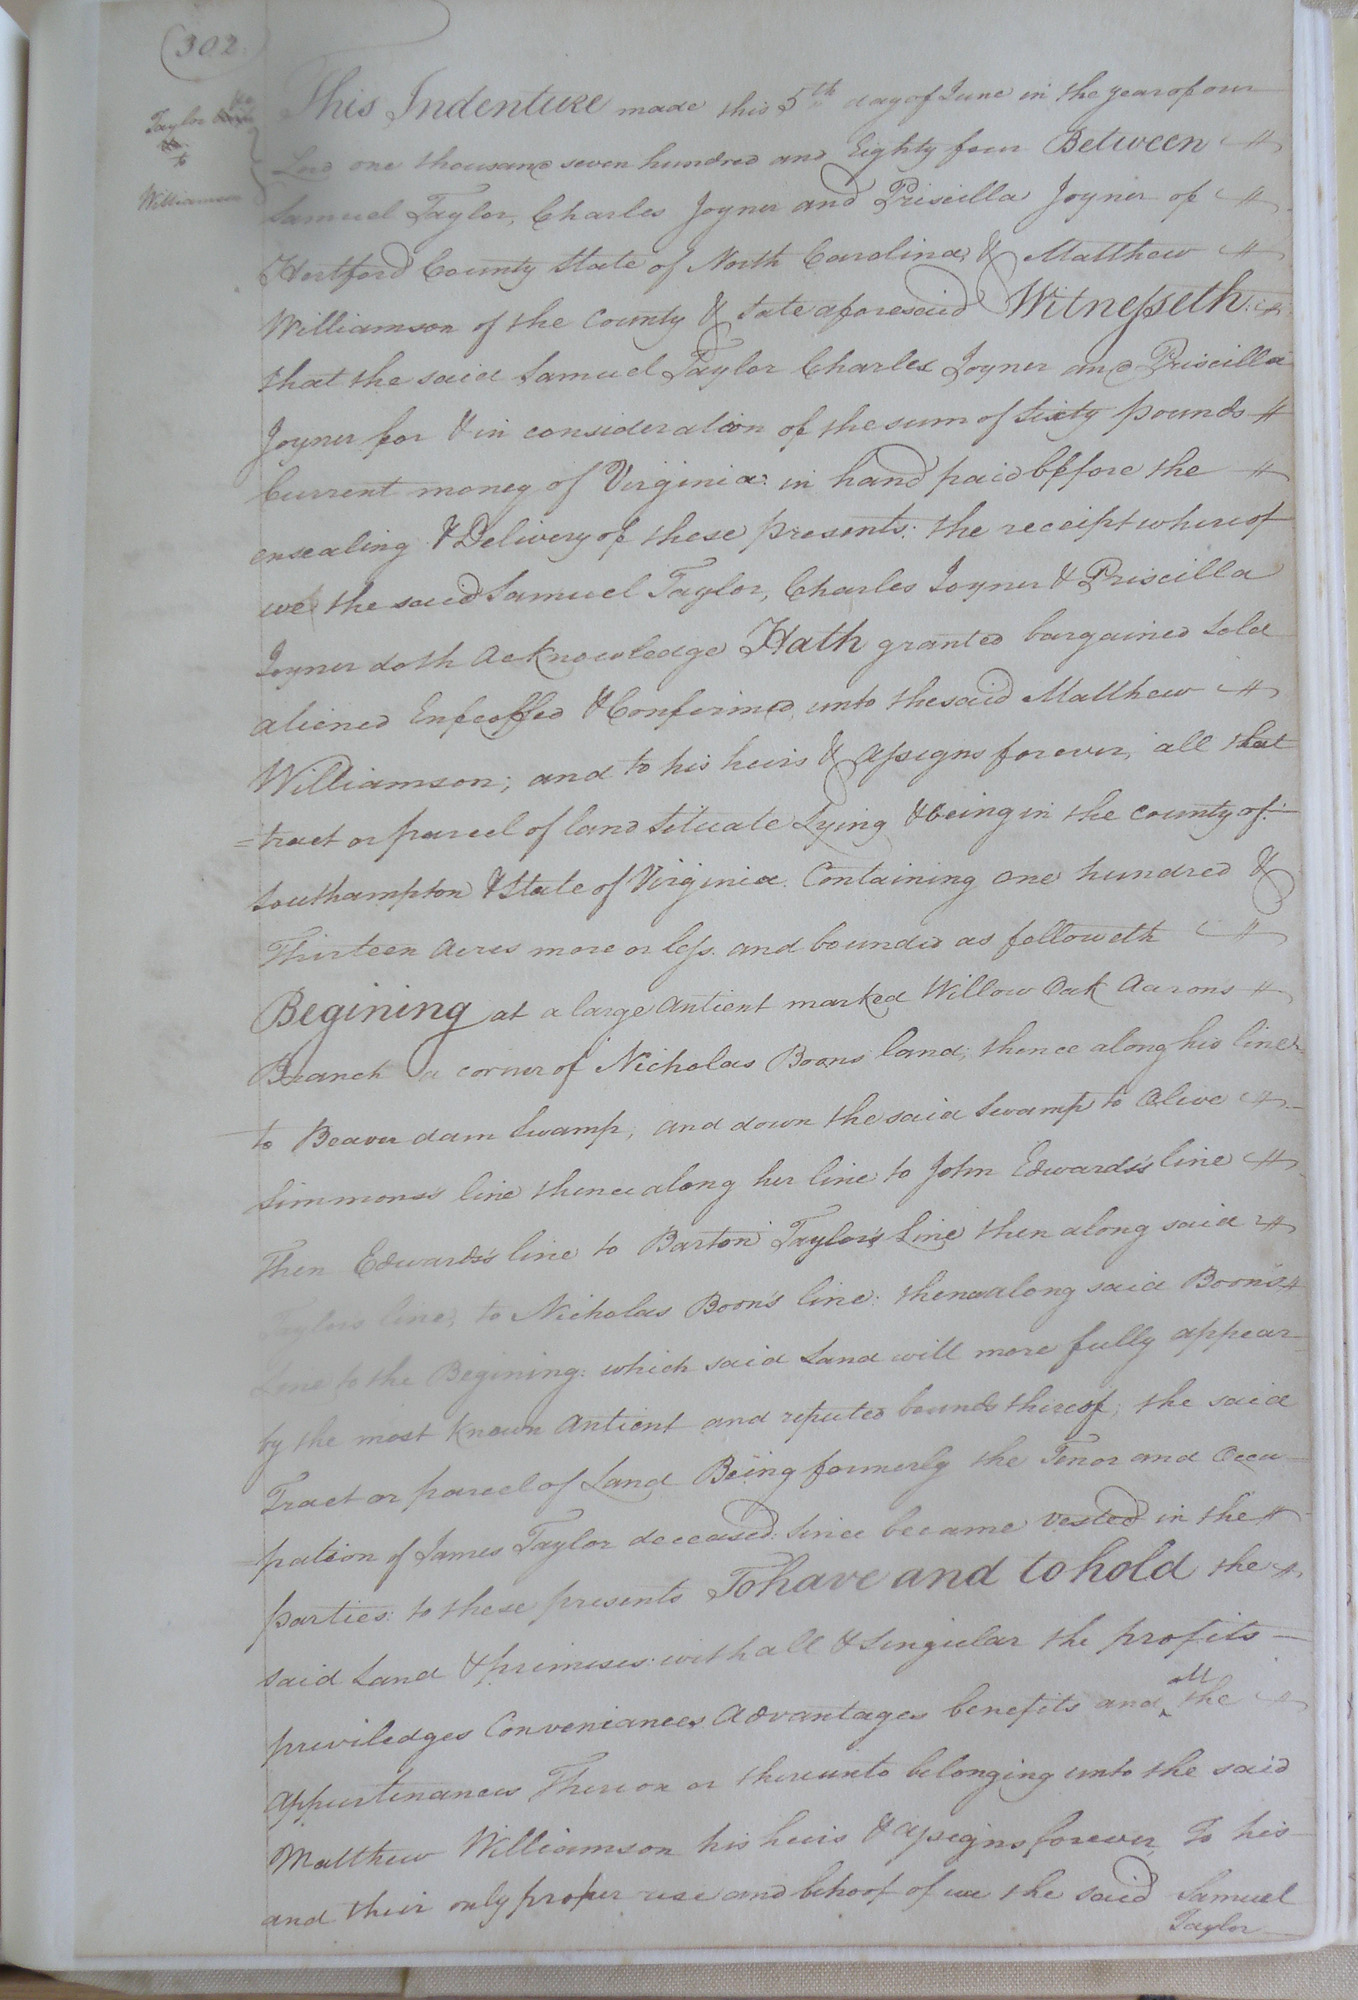 302
Taylor &c
to
Williamson
This Indenture made this 5th day of June in the year of our
Lord one thousand seven hundred and Eighty four Between
Samuel Taylor, Charles Joyner and Priscilla Joyner of
Hertford County State of North Carolina, & Matthew
Williamson of the County & State aforesaid Witnesseth:
that the said Samuel Taylor Charles Joyner and Priscilla
Joyner for & in consideration of the sum of Sixty pounds
Current money of Virginia: in hand paid before the
ensealing & Delivery of these presents: the receipt whereof
we the said Samuel Taylor, Charles Joyner & Priscilla
Joyner doth acknowledge Hath granted bargained Sold
aliened Enfeoffed & Confirmed unto the said Matthew
Williamson; and to his heirs & assigns forever, all that
=tract or parcel of land Situate Lying & being in the county of
Southampton & State of Virginia. Containing one hundred &
Thirteen Acres more or less. and bounded as followeth
Begining at a large antient marked Willow Oak Aarons
Branch a corner of Nicholas Boons land; thence along his line
to Beaver dam Swamp; and down the said Swamp to Olive
Simmons's line thence along her line to John Edwards's line
Then Edwards's line to Barton Taylor's Line then along said
Taylors line, to Nicholas Boon's line: thence along said Boon's
Line to the Begining: which said Land will more fully appear
by the most known antient and reputed bounds thereof; the said
Tract or parcel of Land Being formerly the Tenor and Occu
=pation of James Taylor deceased: Since became vested in the
parties: to these presents To have and to hold the
said Land & primeses with all & Singular the profits
priviledges Conveniances Advantages benefits and all the
appurtenances Thereon or thereunto belonging unto the said
Matthew Williamson his heirs & assigns forever, To his
and their only proper use and behoof of we the said Samuel
Taylor